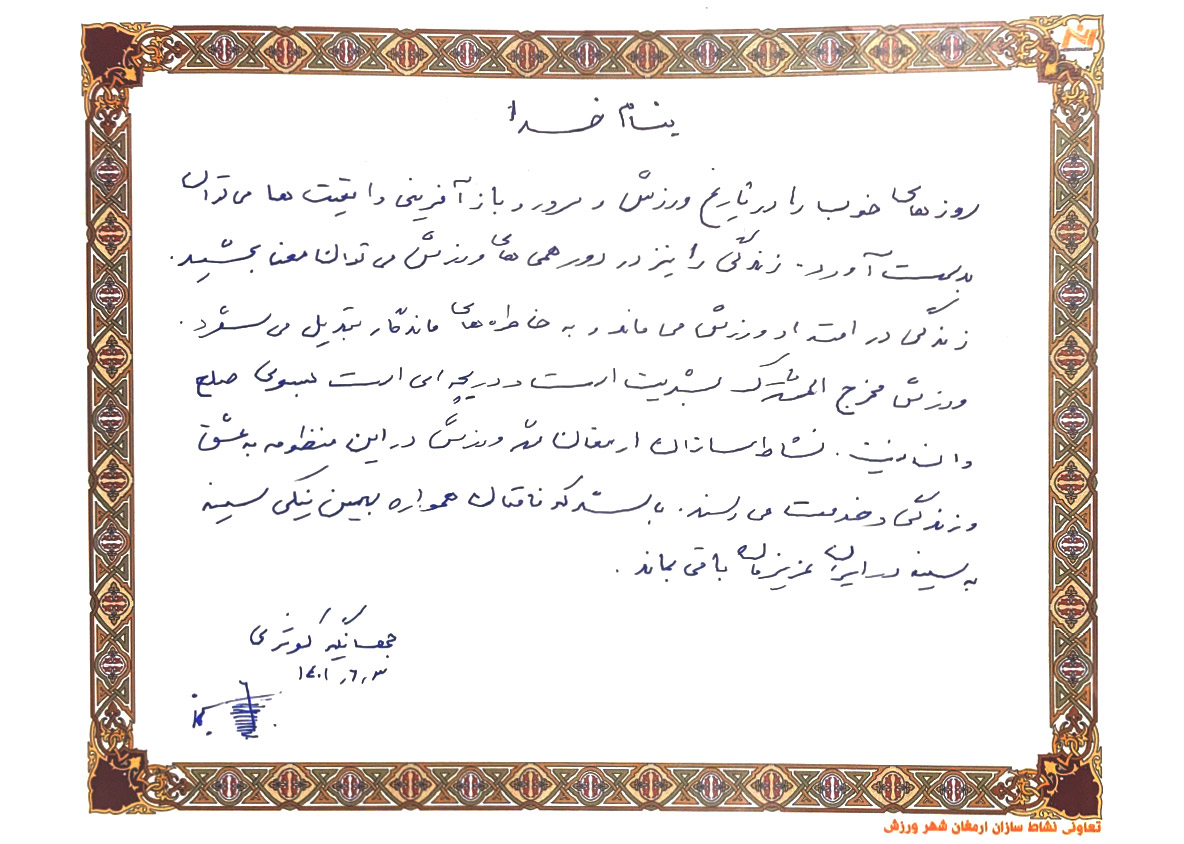 بنام خدا
روزهای خوب را در تاریخ ورزش و مرور و بازآفرینی واقعیت ها می توان
بدست آورد. زندگی را نیز در دورهمی های ورزش می توان معنا بخشید.
زندگی در امتداد ورزش می ماند و به خاطره های ماندگار تبدیل می شود.
ورزش مخرج المشترک بشریت است و دریچه ای است بسوی صلح
و انسانیت. نشاط سازان ارمغان شهر ورزش در این منظومه به عشق
و زندگی و خدمت می رسند. باشد که نامتان همواره به نیکی سینه
به سینه در ایران عزیزمان باقی بماند.
جهانگیر کوثری
۱۴۰۱٫۶٫۳
تعاونی نشاط سازان ارمغان شهر ورزش